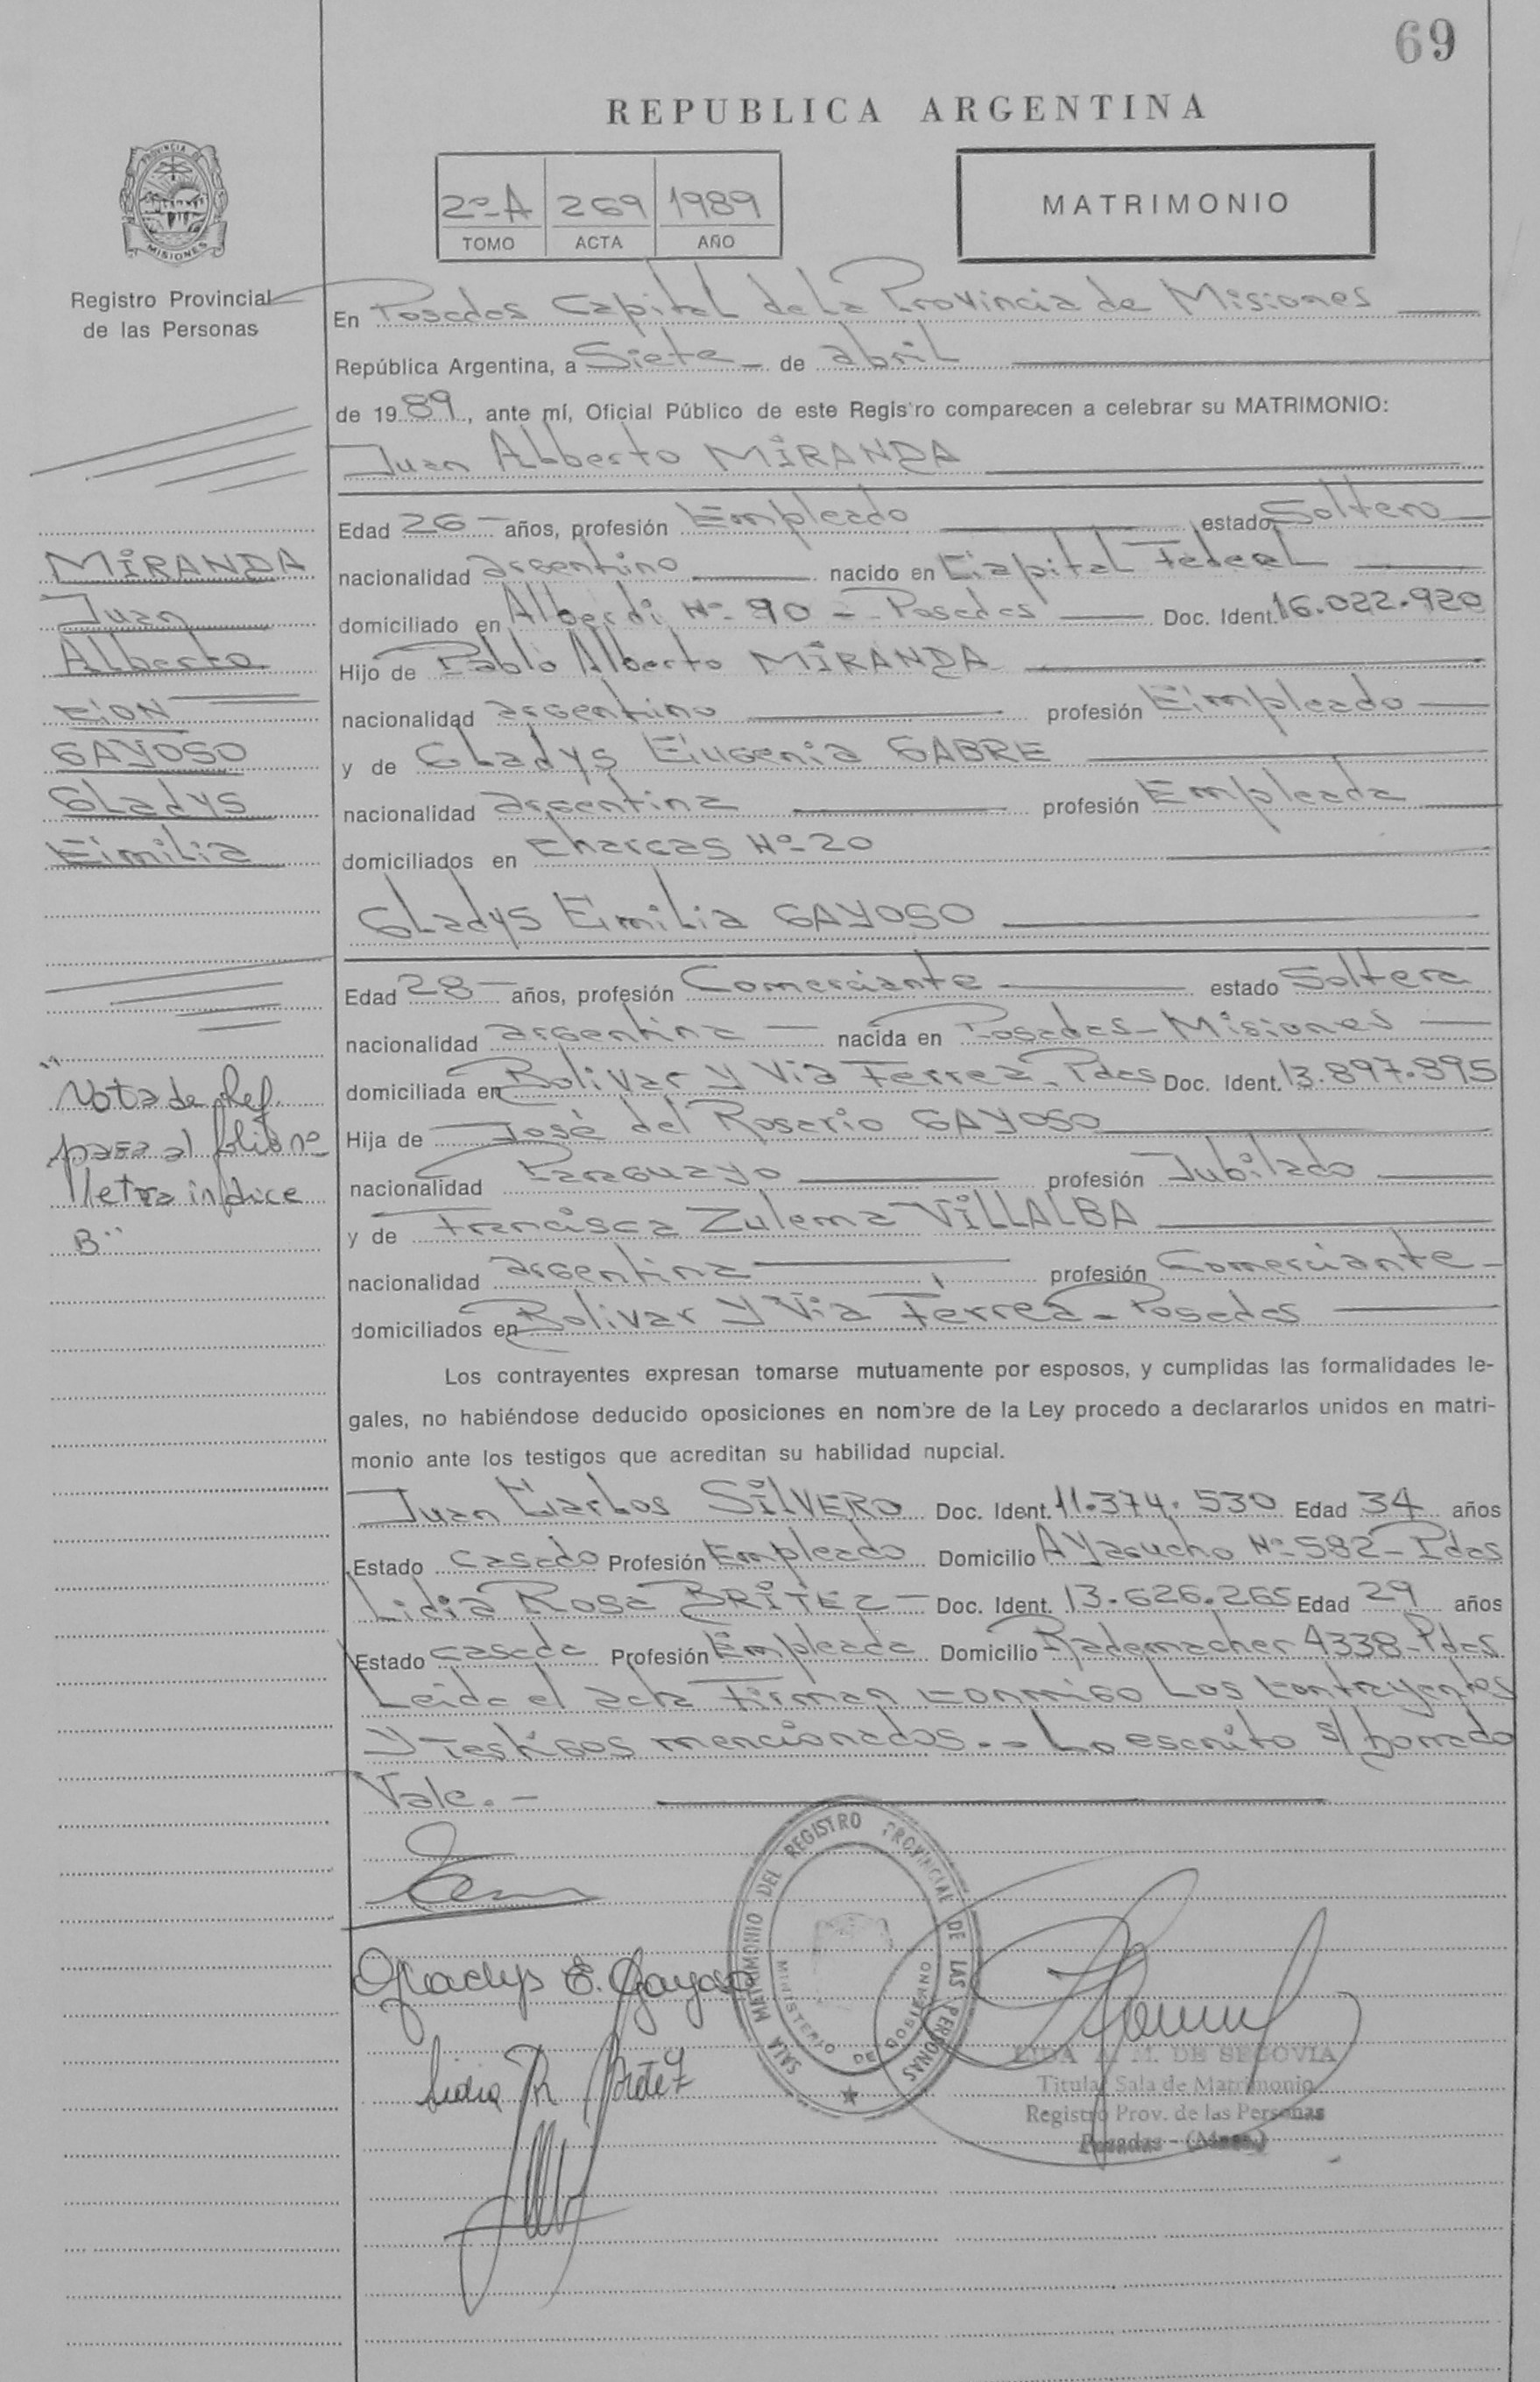 69
REPUBLICA ARGENTINA
PROVINCIA DE
MISIONES
Registro Provincial
de las Personas
2º-A 269 1989
TOMO ACTA AÑO
MATRIMONIO
En Posadas Capital de La Provincia de Misiones
República Argentina, a Siete de abril
de 1989, ante mí, Oficial Público de este Registro comparecen a celebrar su MATRIMONIO:
Juan Alberto MiRANDA
Edad 26 años, profesión Empleado estado Soltero
nacionalidad argentino nacido en Capital Federal
domiciliado en Alberdi Nº 90 - Posadas Doc. Ident. 16.022.920
Hijo de Pablo Alberto MiRANDA
nacionalidad argentino profesión Empleado
y de Gladys Eugenia GABRE
nacionalidad argentina profesión Empleada
domiciliados en Charcas Nº 20
Gladys Emilia GAYOSO
Edad 28 años, profesión Comerciante estado Soltera
nacionalidad argentina nacida en Posadas - Misiones
domiciliada en Bolivar y Via Ferrea. Pdas Doc. Ident. 13.897.895
Hija de José del Rosario GAYOSO
nacionalidad Paraguayo profesión Jubilado
y de Francisca Zulema ViLLALBA
nacionalidad argentina profesión Comerciante
domiciliados en Bolivar y Via Ferrea - Posadas
Los contrayentes expresan tomarse mutuamente por esposos, y cumplidas las formalidades le-
gales, no habiéndose deducido oposiciones en nombre de la Ley procedo a declararlos unidos en matri-
monio ante los testigos que acreditan su habilidad nupcial.
Juan Carlos SiLVERO Doc. Ident. 11.374.530 Edad 34 años
Estado casado Profesión Empleado Domicilio Ayacucho Nº 582 - Pdas
Lidia Rosa BRiTEZ Doc. Ident. 13.626.265 Edad 29 años
Estado casada Profesión Empleada Domicilio Rademacher 4338 - Pdas
Leida el acta Firman conmigo Los contrayentes
y testigos mencionados. - Lo escrito s/ borrado
Vale. -
MiRANDA
Juan
Alberto
CON
GAYOSO
Gladys
Emilia
"Nota de Ref.
pasa al folio nº
1 letra indice
B"
Gladys E. Gayoso
Lidia R Britez
SALA MATRIMONIO DEL REGISTRO PROVINCIAL DE LAS PERSONAS
MINISTERIO DE GOBIERNO
DE SEGOVIA
Titular Sala de Matrimonio
Registro Prov. de las Personas
Posadas - (Mnes.)